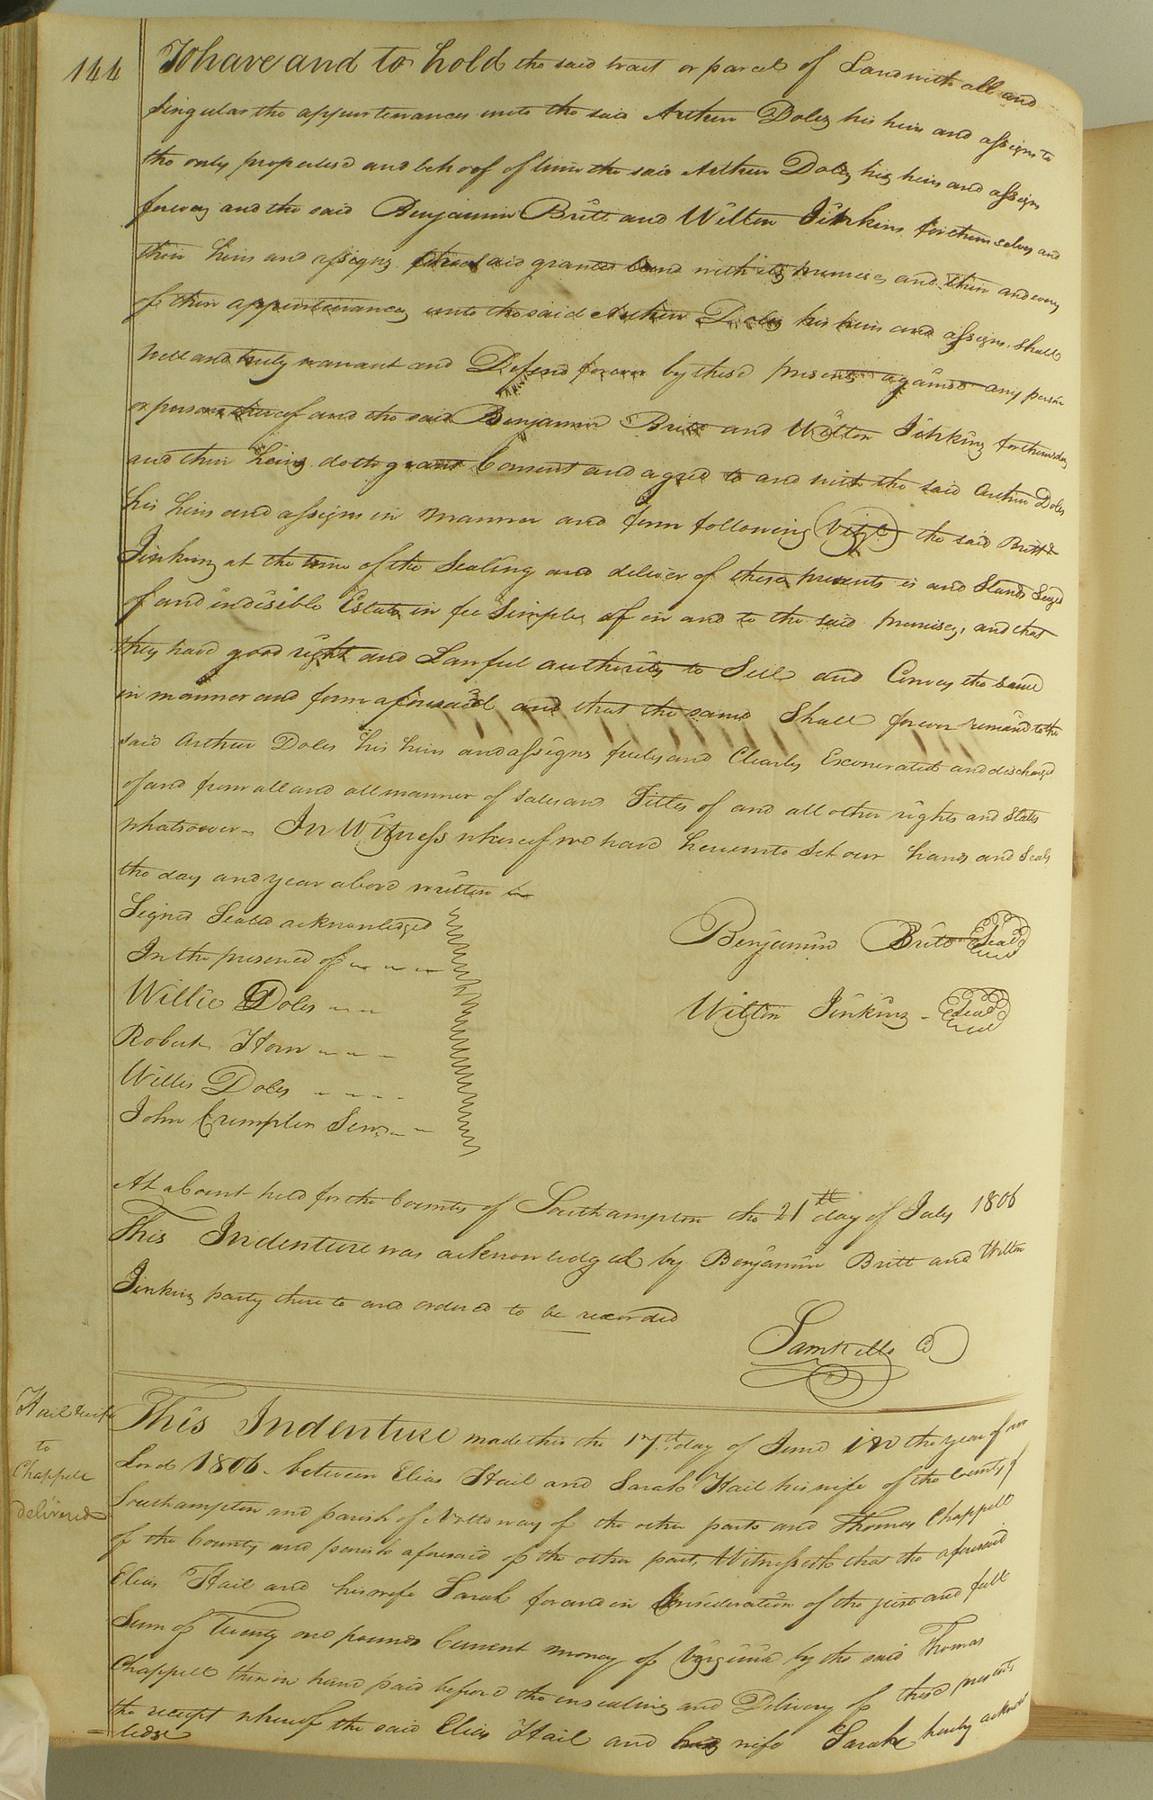 144
To have and to hold the said tract or parcel of Land with all and
singular the appurtenances unto the said Arthur Doles his heirs and assigns to
the only proper use and behoof of him the said Arthur Doles his heirs and assigns
forever and the said Benjamin Britt and Wilton Jinkins for themselves and
their heirs and assigns said granted Land with its premises and their and every
of their appurtenances unto the said Arthur Doles his heirs and assigns shall
well and truly warrant and Defend forever by these presents against any person
or persons and the said Benjamin Britt and Wilton Jinkins for themselves
and their heirs doth grant Consent and agree to and with the said Arthur Doles
his heirs and assigns in manner and form following (Vizt) the said Britt &
Jinkins at the time of the Sealing and deliver of these presents is and Stands Seized
of and indisible Estate in fee Simple of in and to the said premises, and that
they have good right and Lawful authority to Sell and Convey the same
in manner and form aforesaid and that the same Shall forever remaind to the
said Arthur Doles his heirs and assigns freely and Clearly Exonerated and discharged
of and from all and all manner of sales and Titles of and all other rights and States
whatsoever. In Witness whereof we have hereunto Set our hands and Seals
the day and year above written
Signed Sealed acknowledged
In the presence of
Benjamin Britt Seal
Willie Doles
Wilton Jinkins Seal
Robert Horn
Willis Doles
John Crumpler Senr
At a Court held for the County of Southampton the 21th day of July 1806
This Indenture was acknowledged by Benjamin Britt and Wilton
Jinkins party there to and ordered to be recorded
Saml Kello
Hail & wife
to
Chappell
delivered
This Indenture made this the 17th day of June in the year of our
Lord 1806. between Elias Hail and Sarah Hail his wife of the County of
Southampton and parish of Nottoway of the other parts and Thomas Chappell
of the County and parish aforesaid of the other part, Witnesseth that the aforesaid
Elias Hail and his wife Sarah for and in Consideration of the just and full
Sum of Twenty one pounds Current money of Virginia by the said Thomas
Chappell then in hand paid before the ensealing and Delivery of these presents
the receipt whereof the said Elias Hail and his wife Sarah hereby acknow
=ledge